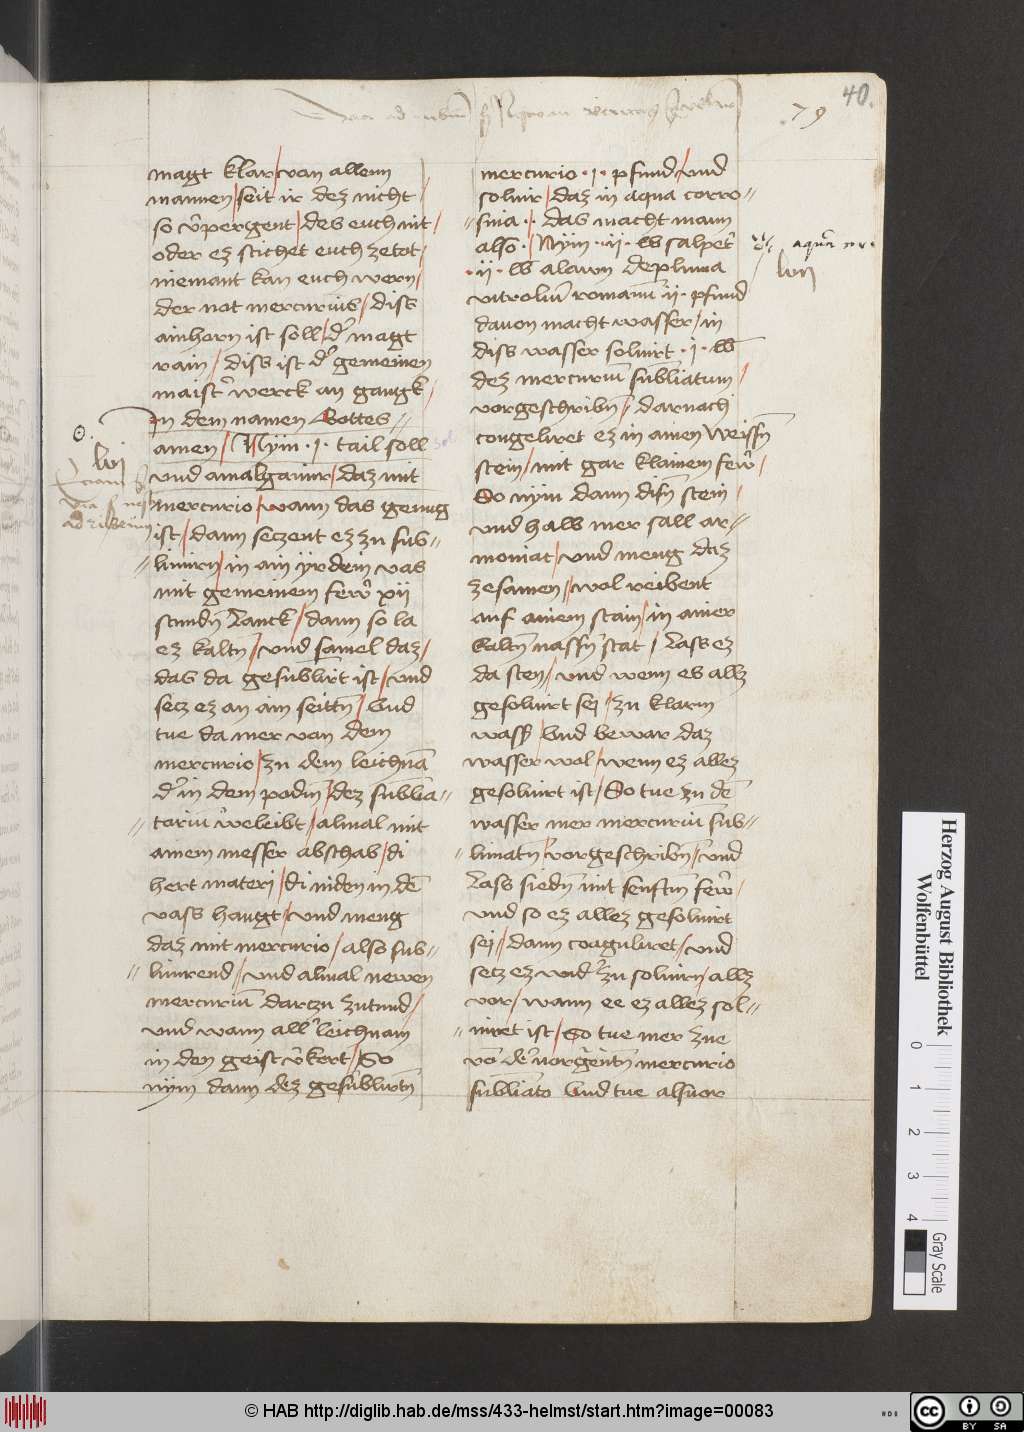 40.
79
magt klar / van allenn
mannen / seit ir dez nicht /
so v̓pergent / des euch nit /
oder ez stichet euch ze tot /
niemant kan euch wern /
der not mercurius / diss
ainhorn ist soll / d̓ magt
rain / diss ist d̓ gemeinen
maist̓ werck an gangk /
In dem namen Gottes //
amen / Nym · 1 · tail soll
vnd amalgamir / daz mit
mercurio / wann das genug
ist / dann seczent ez zu sub//
//limirn / in ain yrdein vas
mit gemeinem fewr̓ xij
stundn̄ lanck / dann so la
ez kaltn̄ / vnd samel daz /
das da gesublirt ist / vnd
secz ez an am seittn̄ / Vnd
tue da mer van dem
mercurio / zu dem leichnā
d̓ in dem podm̄ / dez sublīa//
//toriu̅ weleibt / almal mit
ainem messer abschab / di
hert materj / di niden in dē
vass hangt / vnd meng
daz mit mercurio / also sub//
//limirend / vnd almal newen
mercuriū darczu zutund /
vnd wann all̓ leichnam
in den geist v̓kert / So
nym dann dez gesublirtn̄
mercurio · 1 · pfund / vnd
soluir / daz in aqua corro//
//siua · das macht mann
also · / Nym · ij · lb salpet̓
· ij · lb alawn de pluma
vitrolium romanū ij · pfund
dauon macht wasser / in
diss wasser soluirt · 1 · lb
dez mercuriū subliatum /
vorgeschribn̄ / darnach
congeliret ez in ainen weissn̄
stein / mit gar klainem fewr̓ /
So nym dann disn̄ stein /
vnd halb mer sall ar//
moniac / vnd meng daz
zesamen / wol reibent
auf ainem stain / in ainer
kaltn̄ nassn̄ stat / lass ez
da sten / vnd wenn es allz
gesoluirt sej / zu klarm
wass̓ / Vnd bewar daz
wasser wol / wenn ez allez
gesoluirt ist / So tue zu dē
wasser mer mercuriū sub//
//limatn̄ / vorgeschribn̄ / vnd
lass siedn̄ mit senftm̄ fewr̓ /
vnd so ez allez gesoluirt
sej / dann coaguliret / vnd
secz ez wid̓ zu soluirn / allz
vor / wann ee ez allez sol//
//uiret ist / So tue mer zue
vō de̓ uorgen̄tn̄ mercurio
sublīato Vnd tue alsuor
☉.
lvj
lvij
Herzog August Bibliothek
Wolfenbüttel
0 1 2 3 4
Gray Scale
© HAB http://diglib.hab.de/mss/433-helmst/start.htm?image=00083
cc BY SA